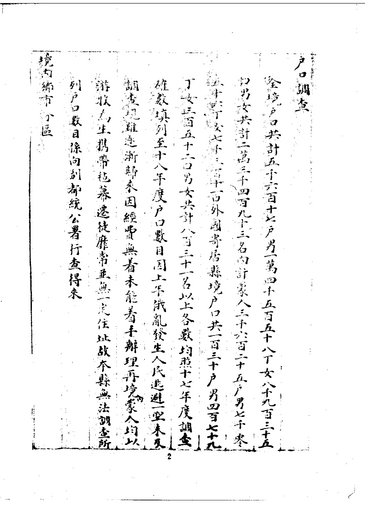 戶口調查
全境戶口共計五千六百十七戶男一萬四千五百五十八丁女八千九百三十五
口男女共計二萬三千四百九十三名內計蒙人三千六百二十五戶男七千零
五十六丁女七千三百十一口外國寄居縣境戶口共一百三十戶男四百七十九
丁女三百五十二口男女共計八百三十一名以上各數均照十七年度調查
確數填列至十八年度戶口數目因上年俄亂發生人民逃避一空未久
調查現雖逐漸歸來因經費無着未能着手辦理再境內蒙人均以
游牧為生携帶氈幕遷徙靡常並無一定住址故本縣無法調查所
列戶口數目係向副都統公署行查得來
境內鄉市分區
2